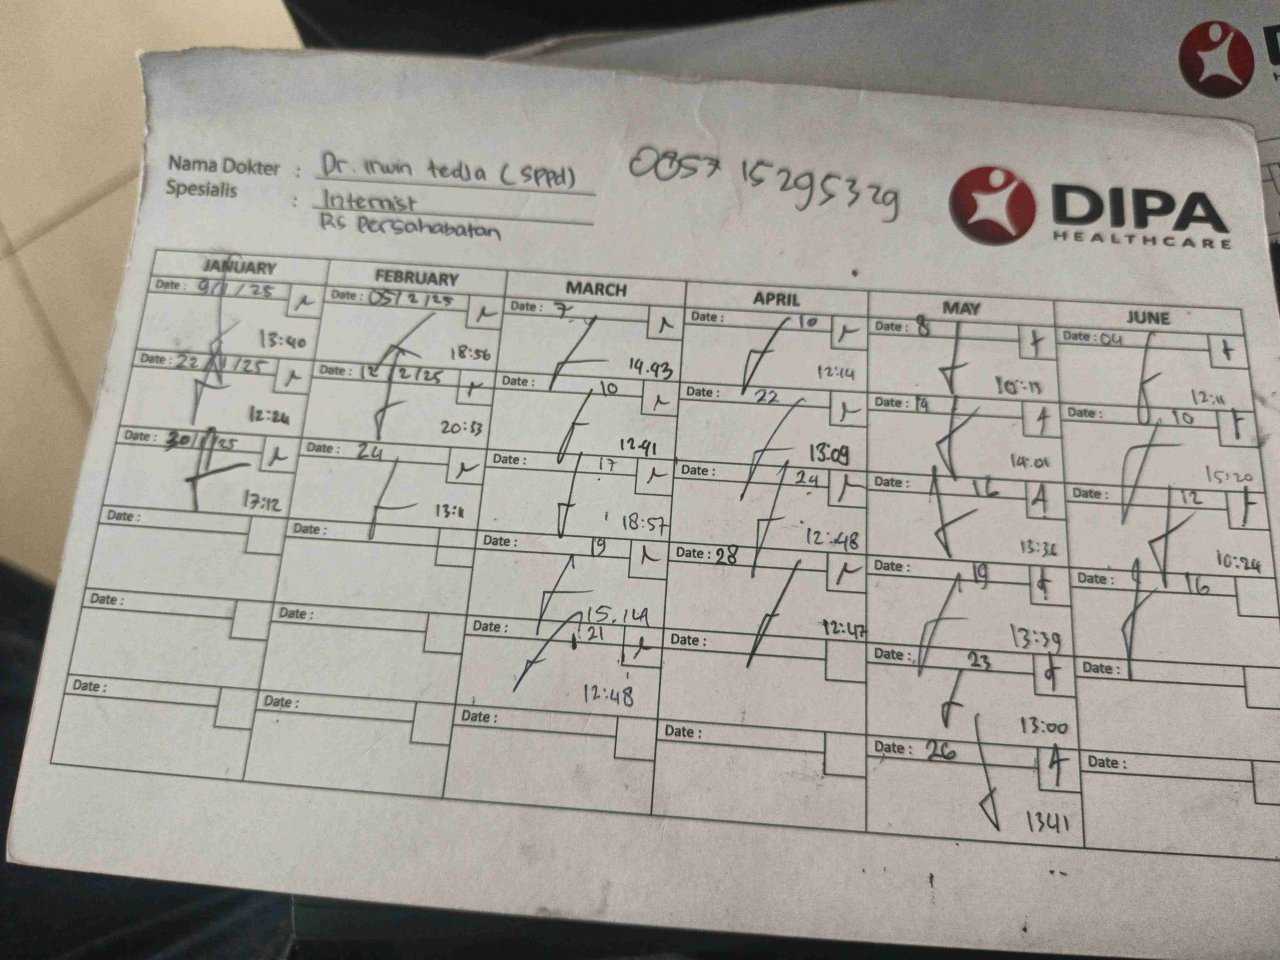 Nama Dokter : Dr. Irwin tedja (Sppd) 0857 15295329
Spesialis : Internist
Rs Persahabatan
DIPA
HEALTHCARE
JANUARY FEBRUARY MARCH APRIL MAY JUNE
Date : 9/1/25 Date : 05/2/25 Date : 7 Date : 10 Date : 8 Date : 04
13:40 18:56 14.43 12:14 12:11
Date : 22/1/25 Date : 12/2/25 Date : 10 Date : 22 Date : 14 Date : 10
12:24 20:53 12:41 13:09 14:01 15:20
Date : 30/1/25 Date : 24 Date : 17 Date : 24 Date : 16 Date : 12
17:12 13:11 18:57 12:48 13:36 10:24
Date : Date : Date : 19 Date : 28 Date : 19 Date : 16
15.14 12:47 13:39
Date : Date : Date : 21 Date : Date : 23 Date :
12:48 13:00
Date : Date : Date : Date : Date : 26 Date :
1341